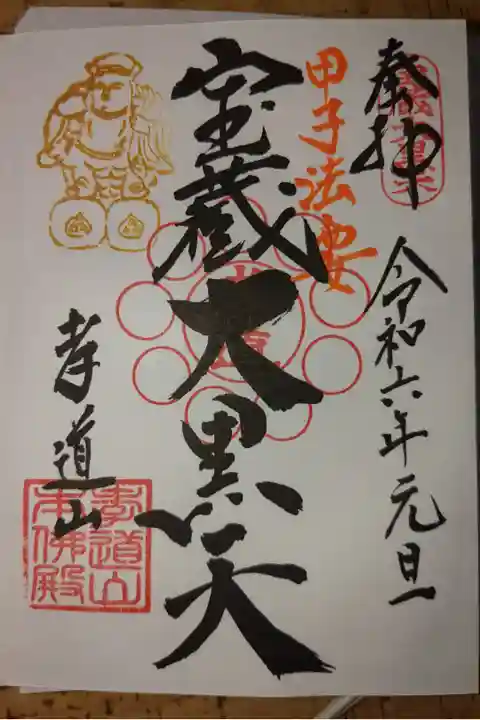 奉拝
令和六年元旦
甲子法要
宝蔵大黒天
孝道山
孝道山
本佛殿